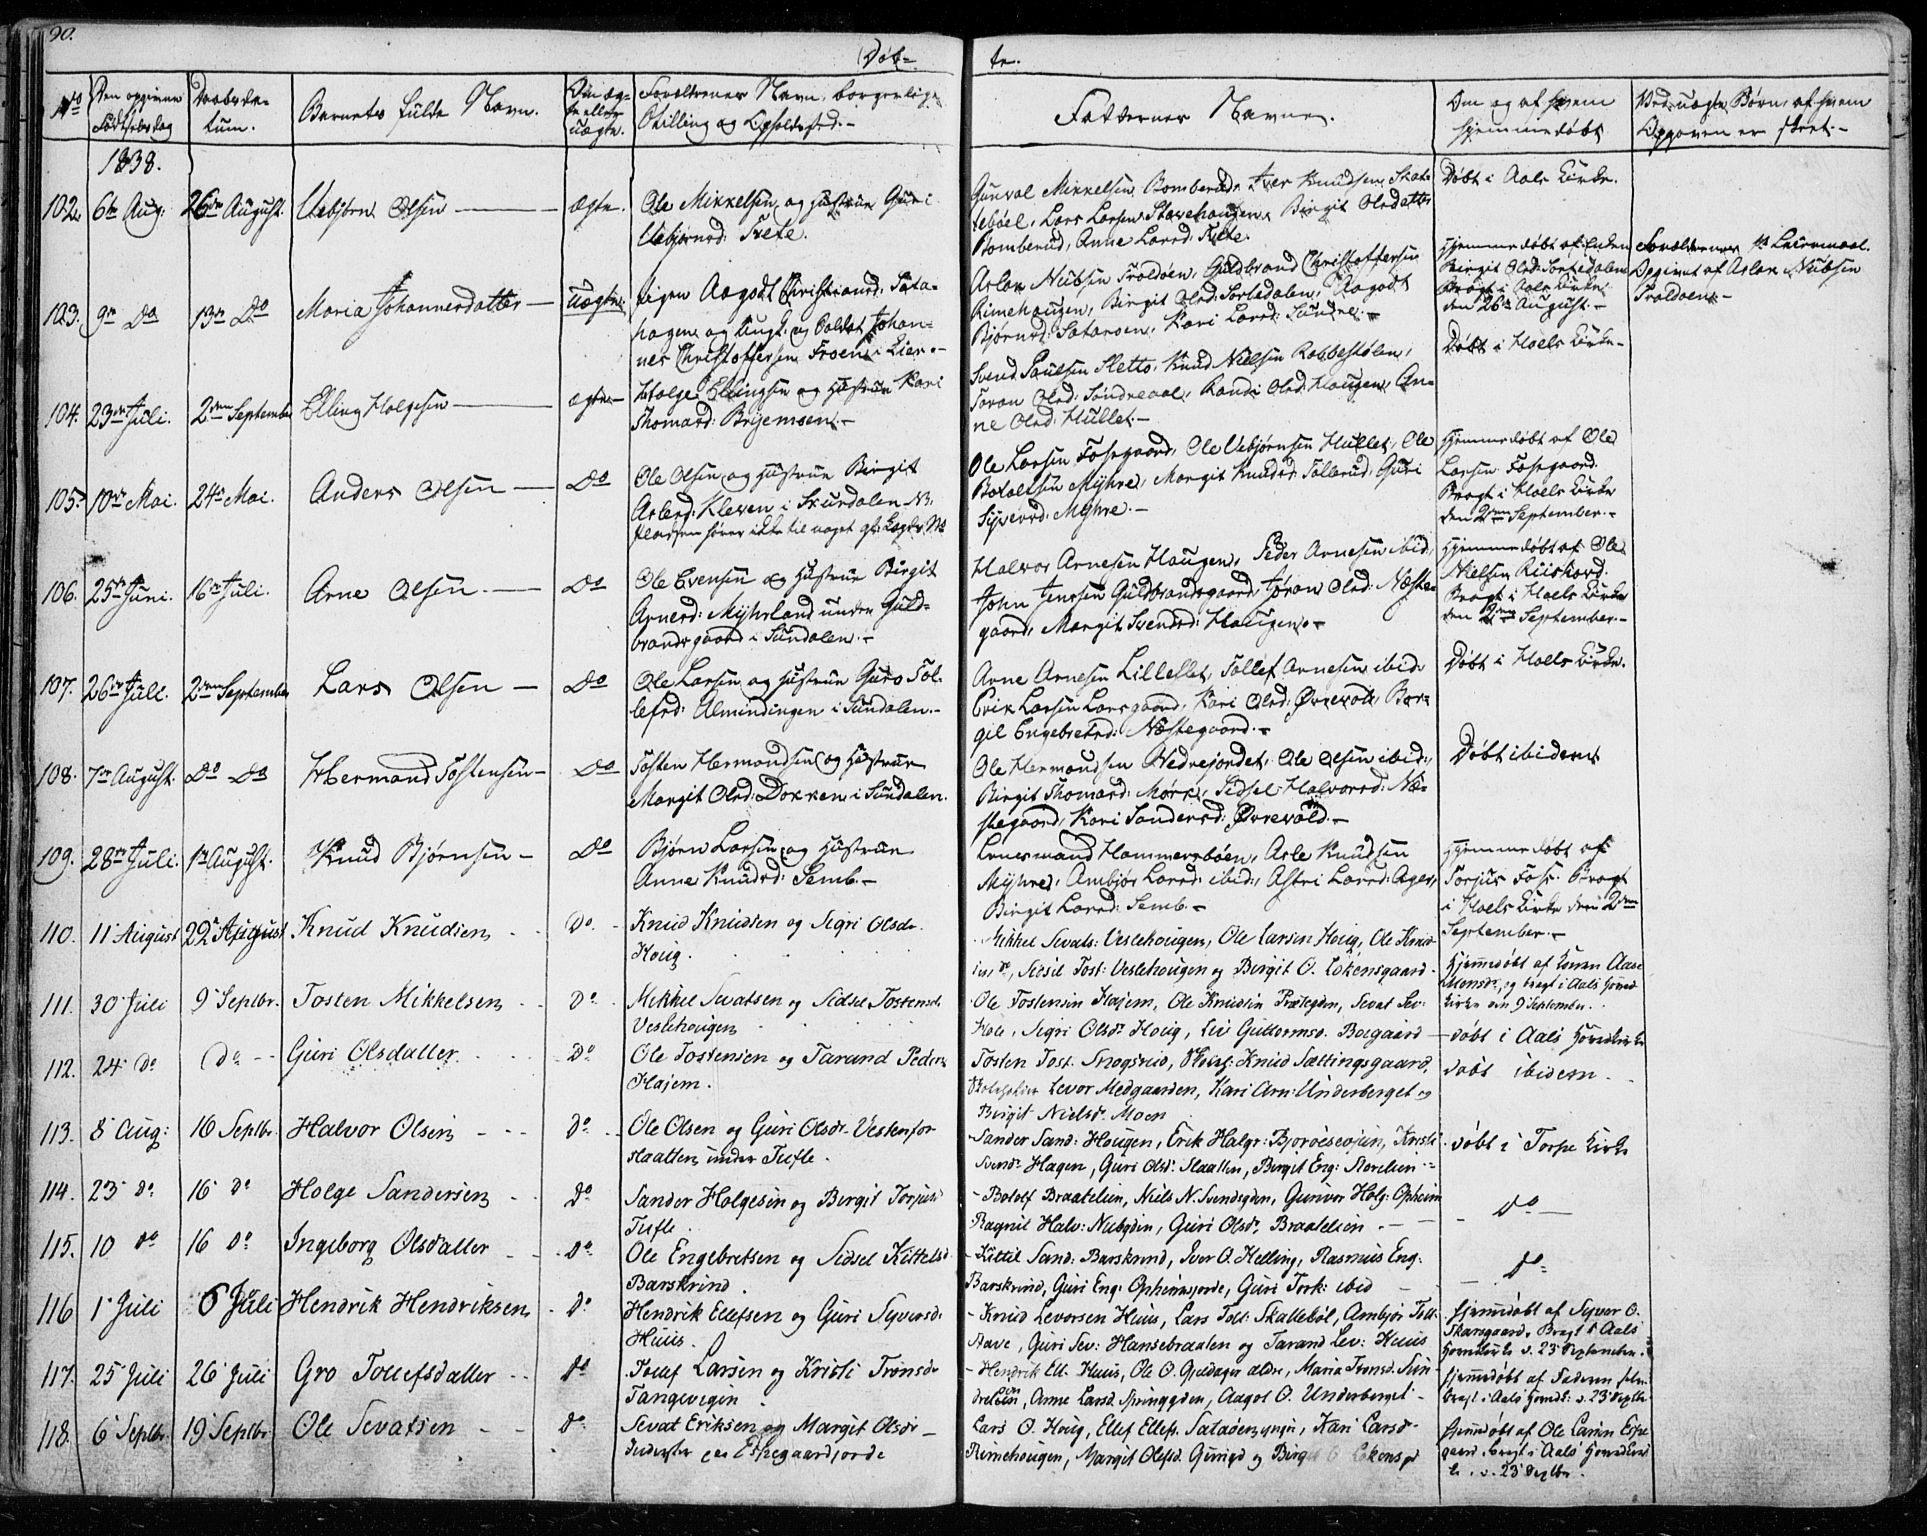 90.
Døb-
te.
No
Den opgivne
Fødselsdag
Daabsda-
tum.
Barnets fulde Navn.
Om æg-
te eller
uægte.
Forældrenes Navn, borgerlige
Stilling og Opholdssted.-
Faddernes Navne.
Om og af hvem
hjemmedøbt
Ved uægte Børn, af hvem
Opgaven er skeet.-
1838.
102. 6te Aug: 26de August. Uebjørn Olsen ægte.
Ole Mikkelsen og Hustrue Guri
Uebjørnsd: Trefe.
Gunval Mikkelsen Bomberud, Iver Knudsen Skat-
tebøel, Lars Larsen Storehougen, Birgit Olsdatter
Bomberud, Anne Larsd:
Døbt i Aals Kirke.
103. 9de Do 13de Do Maria Johannesdatter - uægte.
Pigen Aagodt Christiansd: Sata-
hagen og Ungk. og Soldat Johan-
nes Christoffersen Froen i Lier.-
Aslak Nubsen Troldøen, Guldbrand Christoffersen
Rimehougen, Birgit Olsd: Sortedalen, Aagodt
Bjørnsd: Sataroen, Kari Larsd: Sundre.-
Hjemmedøbt af Enken
Birgit Olsd: Sortedalen
Bragt i Aals Kirke
den 26de August.-
Forældrenes 1ste Leiermaal.
Opgivet af Aslak Nubsen
Troldøen.-
104. 23de Juli. 2den September Elling Holgesen ægte-
Holge Ellingsen og Hustrue Kari
Thomasd: Brijemoen.-
Svend Paulsen Sletto, Knud Nielsen Robbestølen,
Joran Olsd: Søndreaal, Randi Olsd: Haugen, An-
ne Olsd: Hullet.-
Døbt i Hoels Kirke-
105. 10de Mai. 24de Mai. Anders Olsen Do
Ole Olsen og Hustrue Birgit
Aslesd: Kleven i Skurdalen NB.
Ole Larsen Fosegaard, Ole Uebjørnsen Hullet, Ole
Botolfsen Myhre, Margit Knudsd: Tollerud, Guri
Syversd: Myhre.-
Hjemmedøbt af Ole
Larsen Fosegaard.
Bragt i Hoels Kirke
den 2den September.-
106. 25de Juni. 16de Juli. Arne Olsen Do
Ole Evensen og Hustrue Birgit
Arnesd: Myhrland under Guld-
brandsgaard i Sundalen.-
Halvor Arnesen Haugen, Peder Arnesen ibid:
John Jenssen Guldbrandsgaard, Jøran Olsd: Næste-
gaard, Margit Svendsd: Haugen.-
Hjemmedøbt af Ole
Nielsen
Bragt i Hoels Kirke
den 2den September.-
107. 26de Juli. 2den September Lars Olsen - Do
Ole Larsen og Hustrue Guro Tol-
lefsd: Almindingen i Sundalen.-
Arne Arnesen Lilleslet, Tollef Arnesen ibid:
Erik Larsen Larsgaard, Kari Olsd: Øvrevold, Bar-
gil Engebretsd: Næstegaard.-
Døbt i Hoels Kirke.
108. 7de August. Do Do Hermand Tostensen - Do
Tosten Hermandsen og Hustrue
Margit Olsd: Dokken i Sundalen.
Ole Hermandsen Nedrejordet, Ole Olsen ibid:,
Birgit Thomasd: Mørk, Sidsel Halvorsd: Næ-
stegaard, Kari Sandersd: Øvrevold.-
Døbt ibidem
109. 28de Juli. 1ste August. Knud Bjørnsen - Do
Bjørn Larsen og Hustrue
Anne Knudsd: Semb.-
Lensmand Hammersbøen, Asle Knudsen
Myhre, Ambjør Larsd: ibid:, Astri Larsd: Ager,
Birgit Larsd: Semb.-
Hjemmedøbt af
Torjus Fos. Bragt
i Hoels Kirke den 2den
September.-
110. 11 August 22de August Knud Knudsen Do
Knud Knudsen og Sigri Olsdr.
Houg.
Mikkel Sevats: Veslehougen, Ole Larsen Houg, Ole Knud-
sen do, Sidsil Tost: Veslehougen og Birgit O. Løkensgaard.
Hjemmedøbt af Konen Aase
Monsdr, og bragt i Aals Hoved
Kirke den 9 September.
111. 30 Juli 9 Septbr. Tosten Mikkelsen Do
Mikkel Sevatsen og Sidsel Tostensd.
Veslehougen
Ole Tostensen Hajem, Ole Knudsen Prestegden, Sevat Sev:
Hole, Sigri Olsdr Houg, Liv Guttormsd. Boegaard
døbt i Aals Hovedkirke
112. 24 Do Do Guri Olsdatter Do
Ole Tostensen og Tarand Peders
Hajem.
Tosten Tost: Snogsrud, Knud Sættingsgaard,
Levor Medgaarden, Kari Arn: Underberget og
Birgit Nielsdr Moen
døbt ibidem
113. 8 Aug: 16 Septbr. Halvor Olsen Do
Ole Olsen og Guri Olsdr. Vestenfor
slaatten under Tufte.
Sander Sand: Hougen, Erik Halgr: Bjorøeseojen, Kristi
Svendr Hagen, Guri Olsdr. Slaatten, Birgit Eng: Storelien
døbt i Torpe Kirke
114. 23 Do 16 Do Holge Sandersen Do
Sander Holgesen og Birgit Torjusd
Tufte.
Botolf Braatelien, Niels N. Svendsgden, Gunvor Holg: Opheim
Ragnil Halv: Nubgden, Guri Olsdr, Braatelien
do
115. 10 do 16 Do Ingeborg Olsdatter Do
Ole Engebretsen og Sidsel Kittelsd.
Barskrind.
Kittil Sand: Barskrind, Iver O. Helling, Rasmus Eng.
Barskrind, Guri Eng: Opheimsjorde, Guri Tork: ibid
do
116 1 Juli 6 Juli Hendrik Hendriksen Do
Hendrik Ellefsen og Guri Syversd.
Huus.
Knud Levorsen Huus, Lars Tolt: Skattebøl, Ambjør Toll.
Aave, Guri Sev: Hansebraaten og Tarand Lev: Huus
Hjemmedøbt af Syver O.
Skarsgaard. Bragt i Aals
Hovedkirke d. 23 September.
117. 25 Juli 26 Juli Gro Tollefsdatter do
Tollef Larsen og Kristi Tronsdr
Tangevegen
Hendrik Ell. Huus, Ole O. Gjeldager ældre, Maria Tronsd. Sun-
drelien, Anne Larsd. Springgden, Aagot O. Underberget
Hjemmedøbt af Faderen selv
bragt i Aals Hovedk: d. 23 Septbr.
118. 6 Septbr. 19 Septbr. Ole Sevatsen Do
Sevat Eriksen og Margit Olsdr
Inderster paa Espegaardjorde
Lars O. Houg, Ellef Ellefs. Sataøenyngre, Kari Larsdr
Rimehougen, Margit Olefsd. Guriegd og Birgit O Løkensgd
Hjemmedøbt af Ole Larsen Espe
gaard bragt i Aals Hovedkir
ke. d. 23 Septbr.